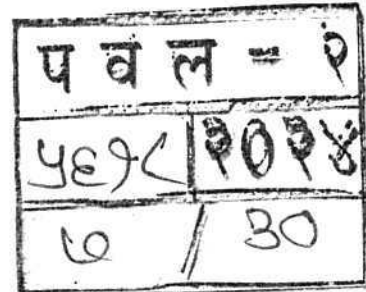 प व ल - २
५६१८ २०२४
७ / ३०